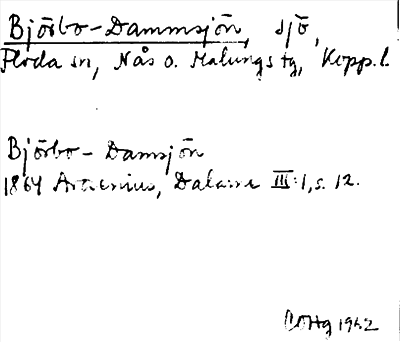 Björbo-Dammsjön, sjö,
Floda sn, Nås o. Malungs tg, Kopp.l.
Björbo-Damsjön
1864 Arosenius, Dalarne III:1, s. 12.
1962